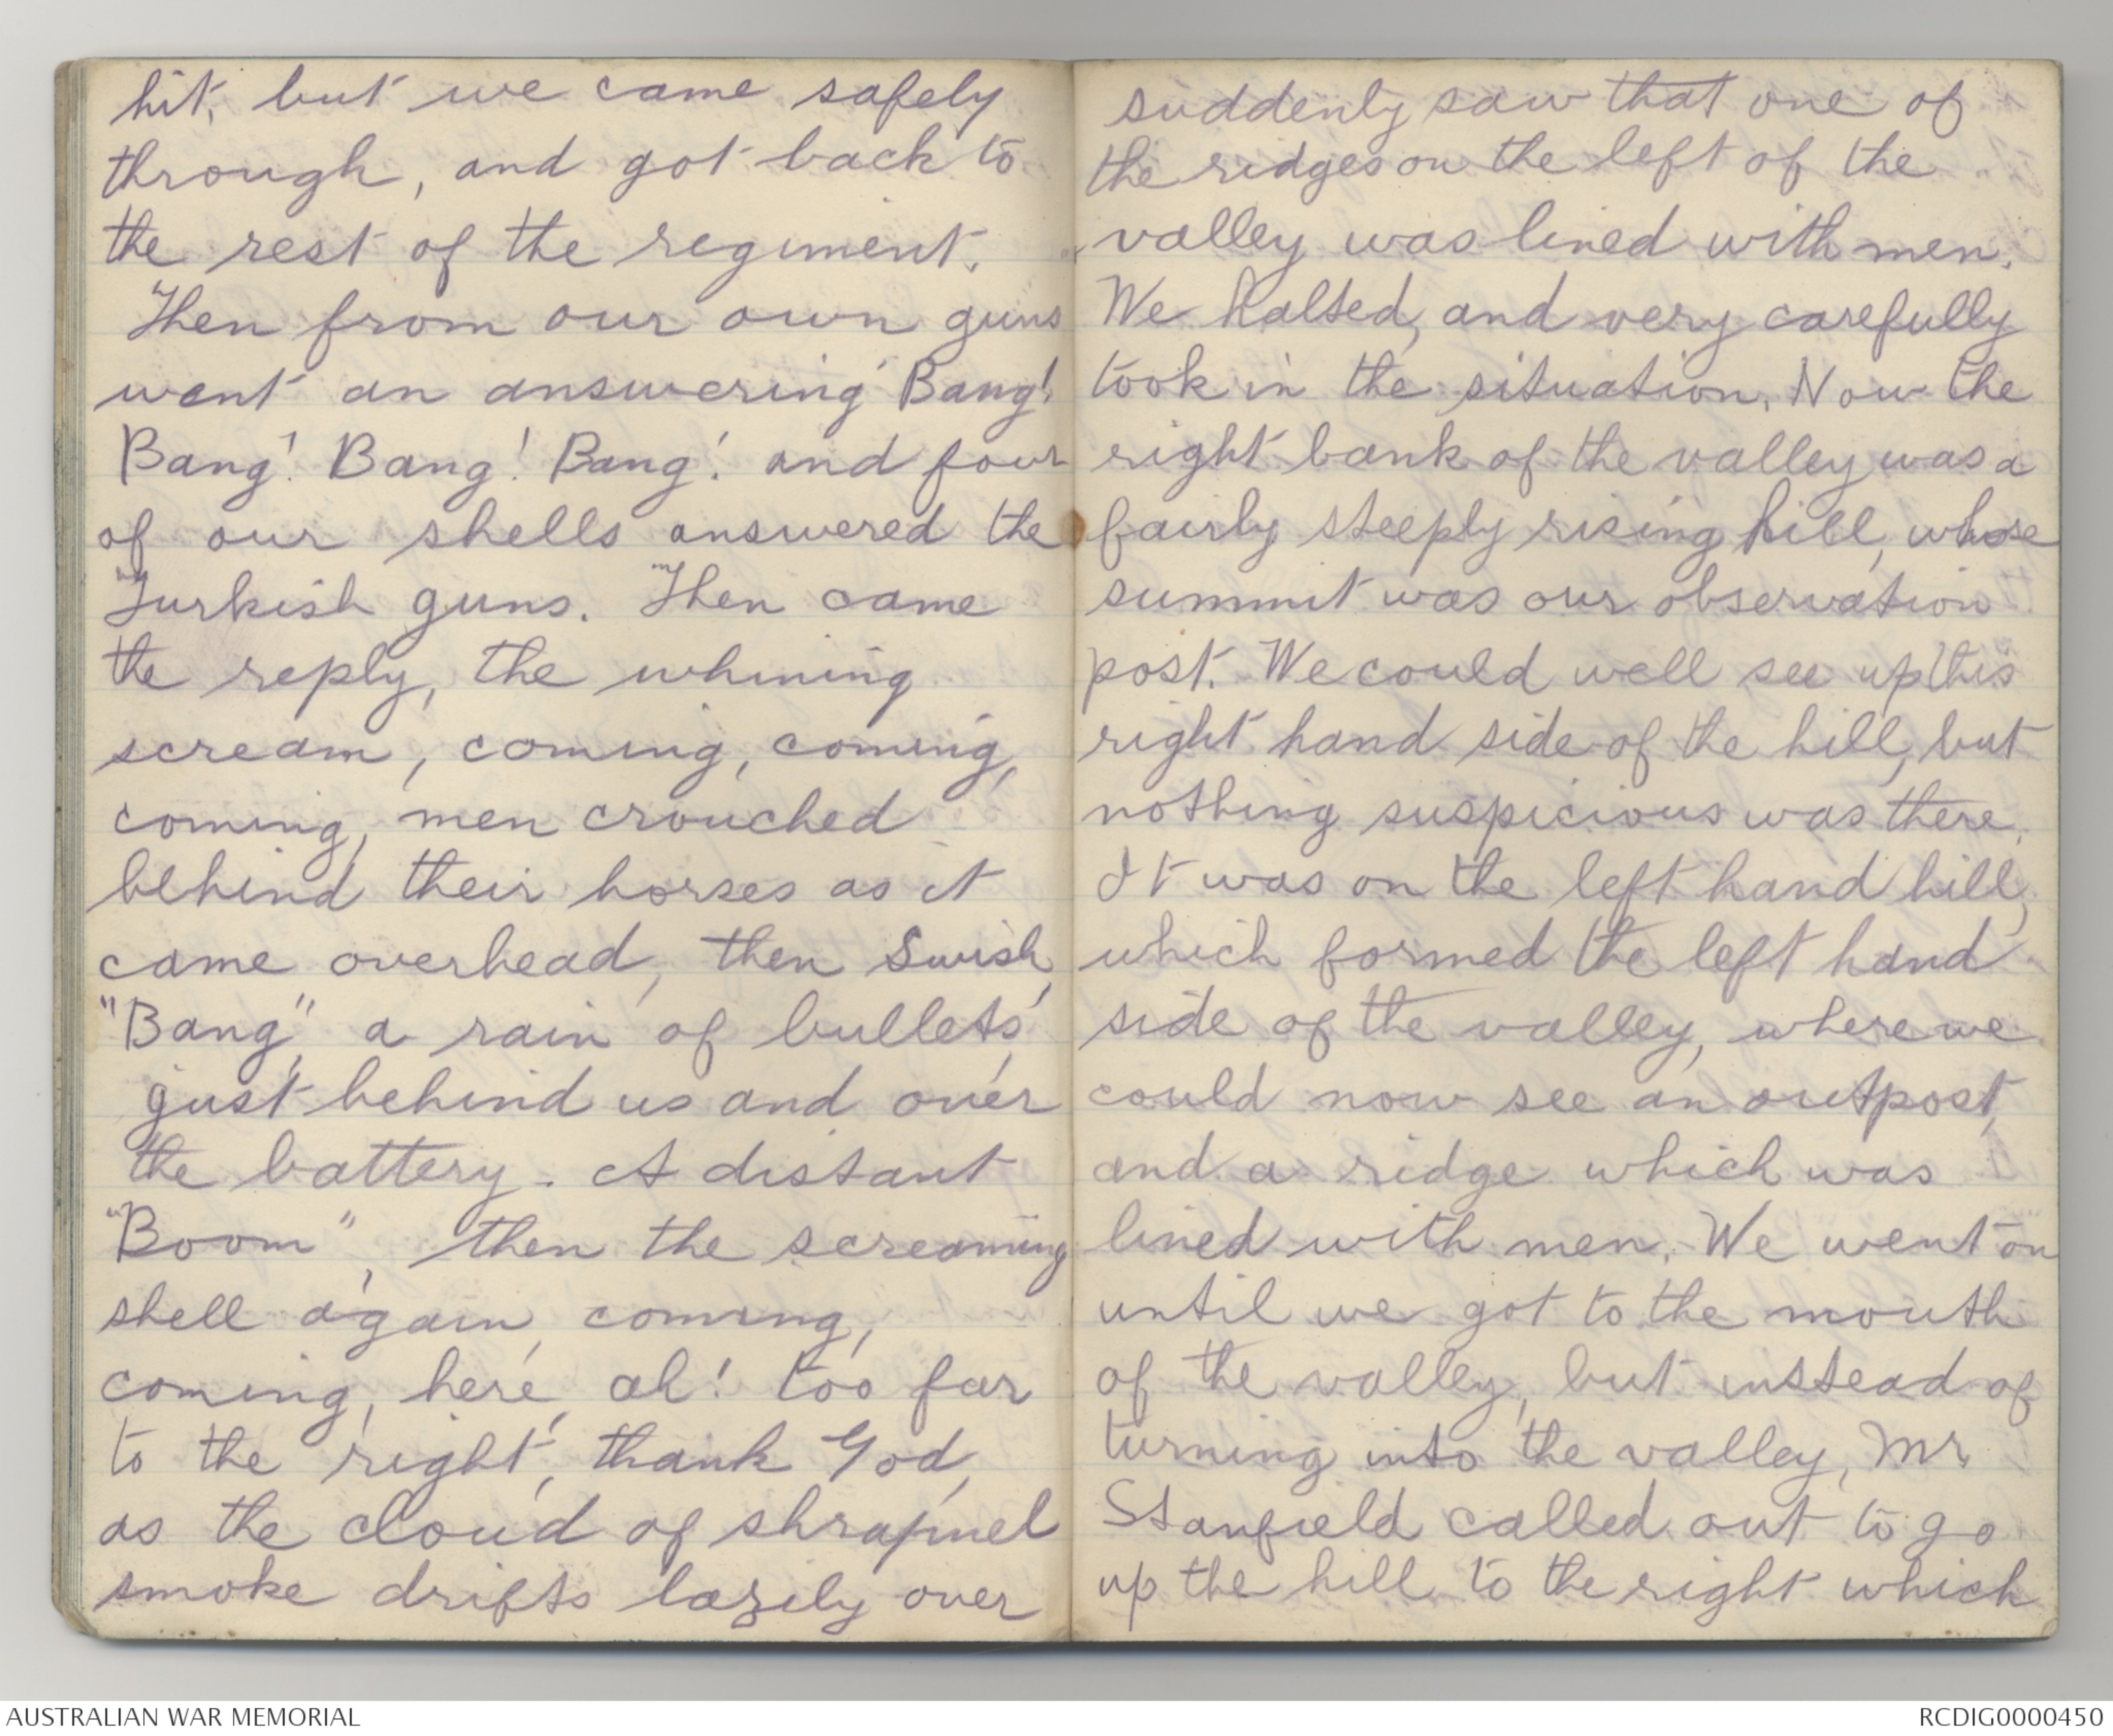 hit, but we came safely
through, and got back to
the rest of the regiment.
Then from our own guns
went an answering Bang!
Bang! Bang! Bang! and four
of our shells answered the
Turkish guns. Then came
the reply, the whining
scream, coming, coming,
coming, men crouched
behind their horses as it
came overhead, then Swish,
"Bang", a rain of bullets
just behind us and over
the battery. A distant
"Boom", then the screaming
shell again, coming,
coming, here, ah! too far
to the right, thank God,
as the cloud of shrapnel
smoke drifts lazily over
suddenly saw that one of
the ridges on the left of the
valley was lined with men.
We halted, and very carefully
took in the situation. Now the
right bank of the valley was a
fairly steeply rising hill, whose
summit was our observation
post. We could well see up this
right hand side of the hill, but
nothing suspicious was there.
It was on the left hand hill,
which formed the left hand
side of the valley, where we
could now see an outpost,
and a ridge which was
lined with men. We went on
until we got to the mouth
of the valley, but instead of
turning into the valley, Mr
Stanfield called out to go
up the hill to the right which
AUSTRALIAN WAR MEMORIAL
RCDIG0000450